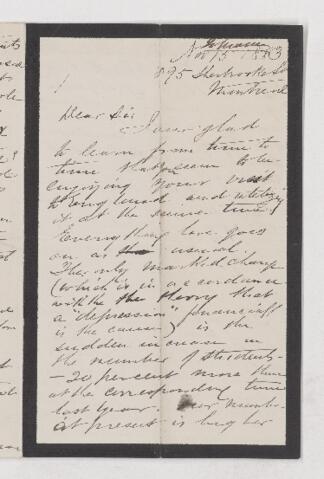 Nov 15 1883
895 Sherbrooke St
Montreal
Dear Sir
I am glad
to learn from time to
time that you seem to be
enjoying your visit
to England and utilizing
it at the same time
Everything here goes
on as usual.
The only marked change
(which is in accordance
with the theory that
a "depression" financial
is the cause) is the
sudden increase in
the number of students -
- 20 percent more than
at the corresponding time
last year. Our number
at present is higher